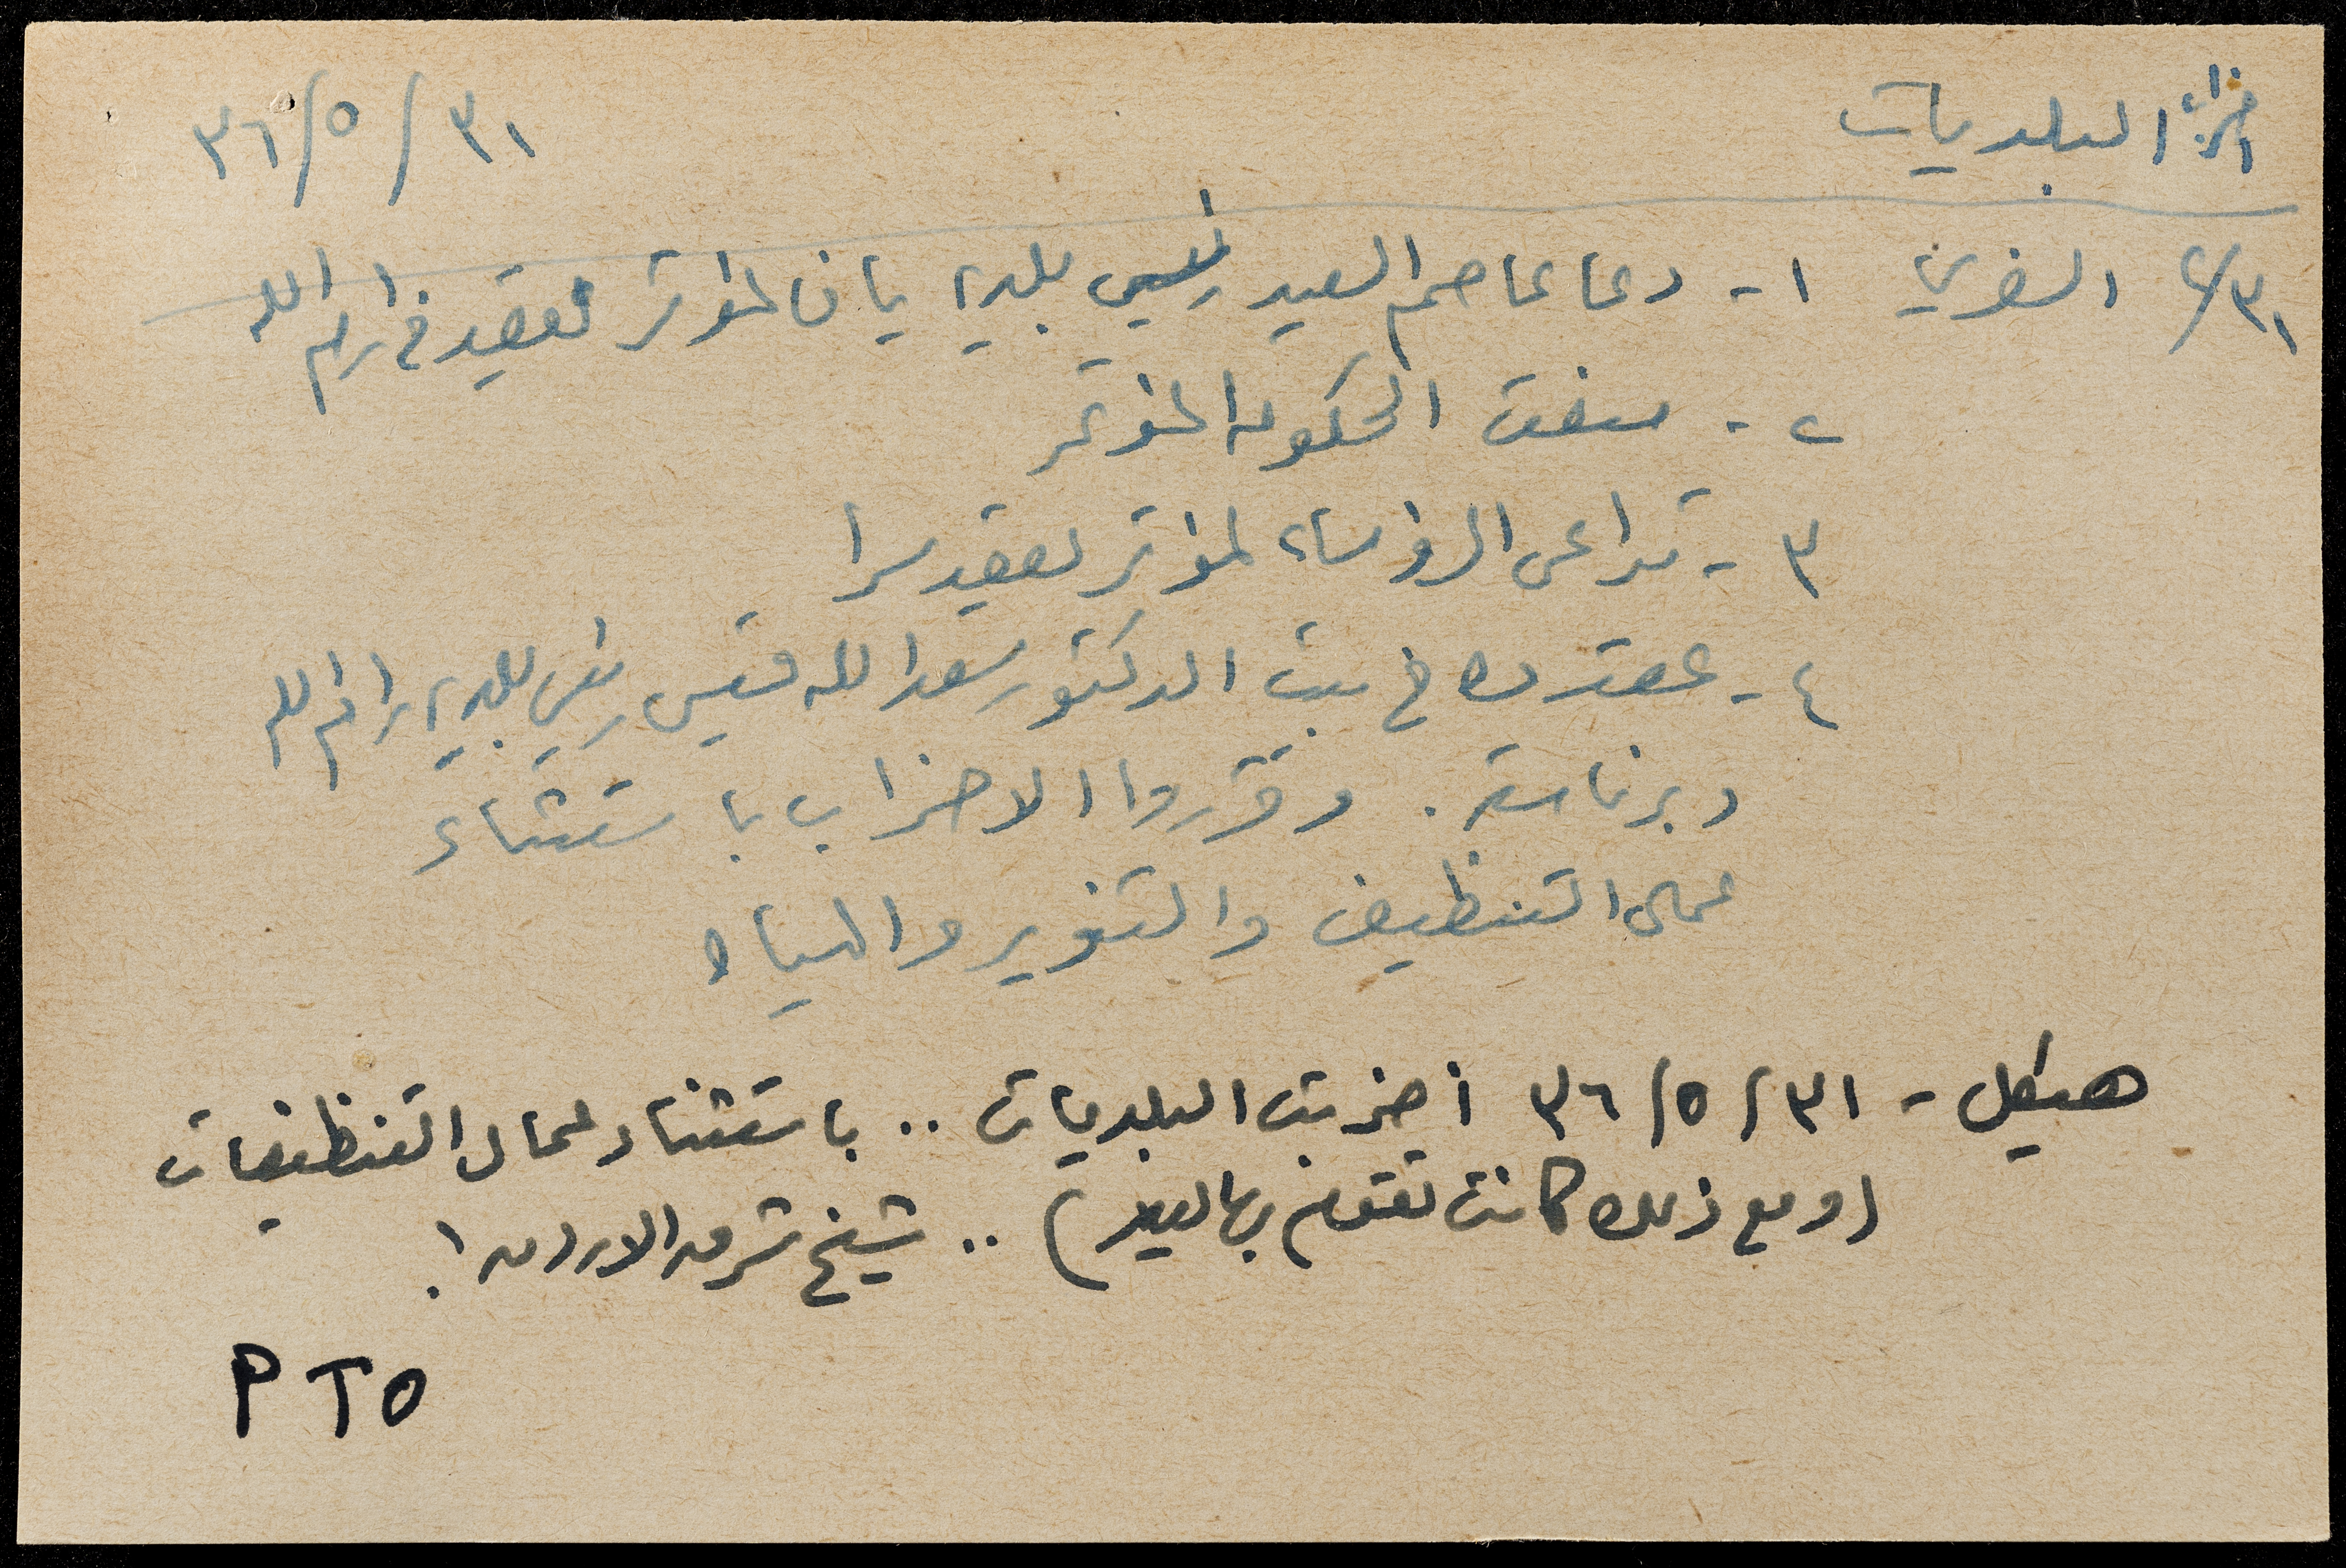 اضراب البلديات ٣١/٥/٣٦
٣١/ السفري ١ - دعا عاصم السعيد رئيس بلدية يافا لمؤتمر لعقد في رام الله
٢ - منعت الحكومة المؤتمر
٣ - تداعى الرؤساء لمؤتمر يعقد سرا
٤ - عقدوه في بيت الدكتور سعد الله قسيس رئيس بلدية رام الله
وبرئاسته . وقرروا الاضراب باستثناء
عمال التنظيف والتنوير والمياه
هيكل - ٣١/٥/٣٦ أضربت البلديات .. باستثناء عمال التنظيفات
(ومع ذلك كانت تقوم بها ) .. شيخ شرق الاردن !
PTO